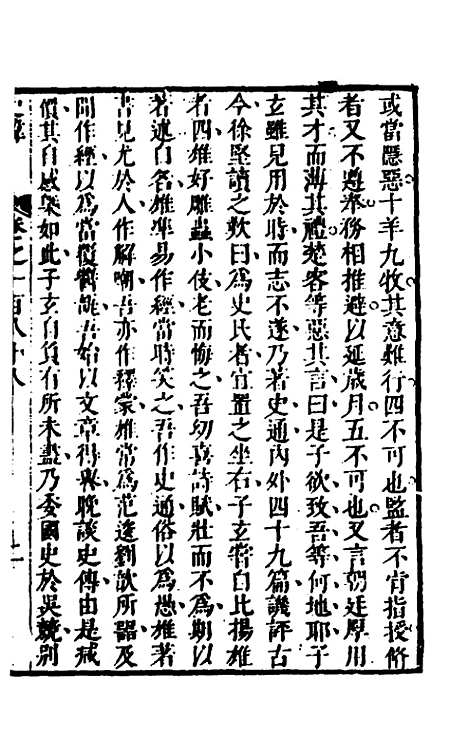 或當隱惡十羊九牧其意難行四不可也監者不肯指授修
者又不遵奉務相推避以延歲月五不可也又言朝廷厚用
其才而薄其禮楚客等惡其言曰是子欲致吾等何地耶子
玄雖見用於時而志不遂乃著史通內外四十九篇譏評古
今徐堅讀之歎曰爲史氏者宜置之坐右子玄嘗自比揚雄
者四雄好雕蟲小伎老而悔之吾幼喜詩賦壯而不爲期以
著述自名雄準易作經當時笑之吾作史通俗以爲愚雄著
書見尤於人作解嘲吾亦作釋蒙雄常爲范逡劉歆所器及
聞作經以爲當覆醬瓿吾始以文章得譽晚談史傳由是減
價其自感槩如此子玄自負有所未盡乃委國史於吳兢別
卷之一百八十八